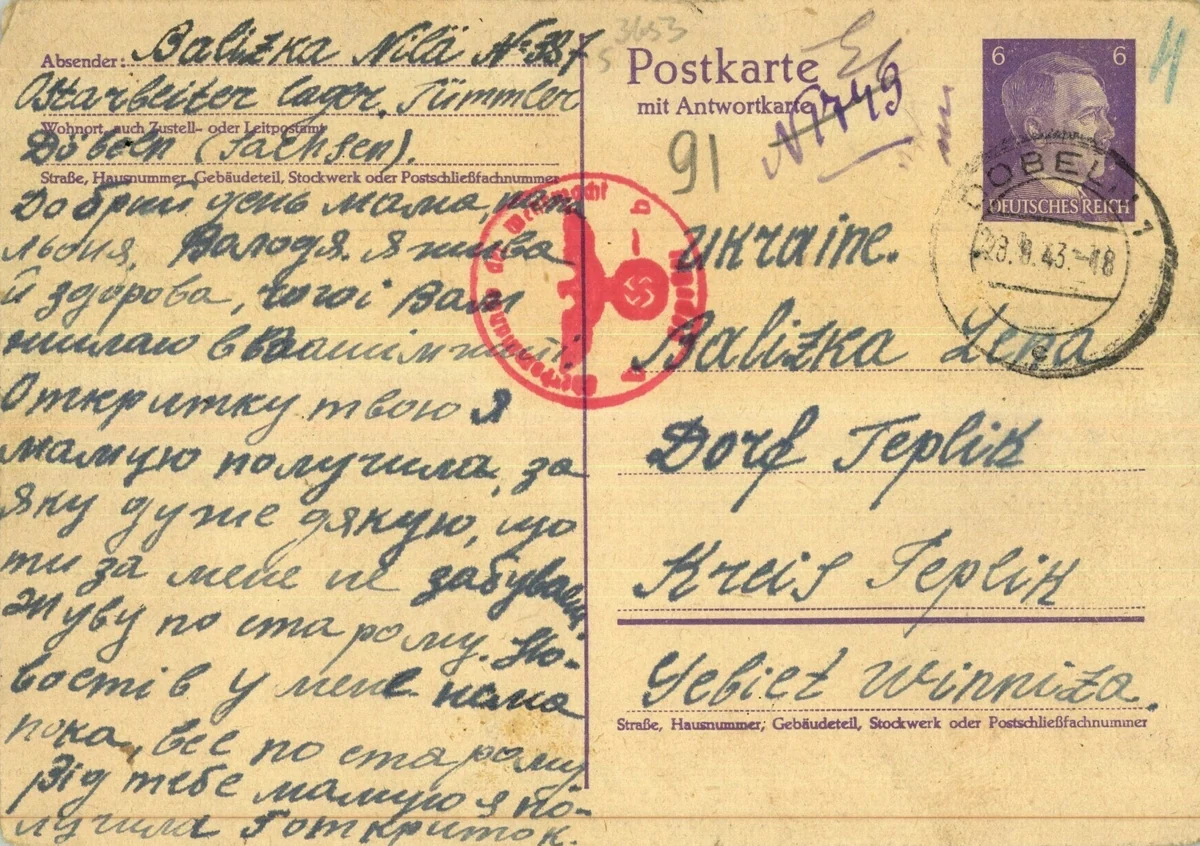 Absender: Balizka Nilä № 387
Ostarbeiter lager. Tümmler
Wohnort, auch Zustell- oder Leitpostamt
Döbeln (Sachsen).
Straße, Hausnummer, Gebäudeteil, Stockwerk oder Postschließfachnummer
Добрий день мама, папа
Валодя. Я жива
й здорова, чого і Вам
в Вашім житті
Откритку твою я
мамую получила, за
яку дуже дякую, що
ти за мене не забуваєш.
Жуву по старому. Но-
востів у мене нема
пока, все по старому
Від тебе мамую я по-
лучила 7 откриток.
3653
S
Postkarte
mit Antwortkarte
N 1749
91
6 6
DEUTSCHES REICH
DÖBELN 1
43.-18
c
Oberkommando der Wehrmacht
b
Ukraine.
Balizka Lena
Dorf Teplik
Kreis Teplik
Gebiet Winniza.
Straße, Hausnummer, Gebäudeteil, Stockwerk oder Postschließfachnummer